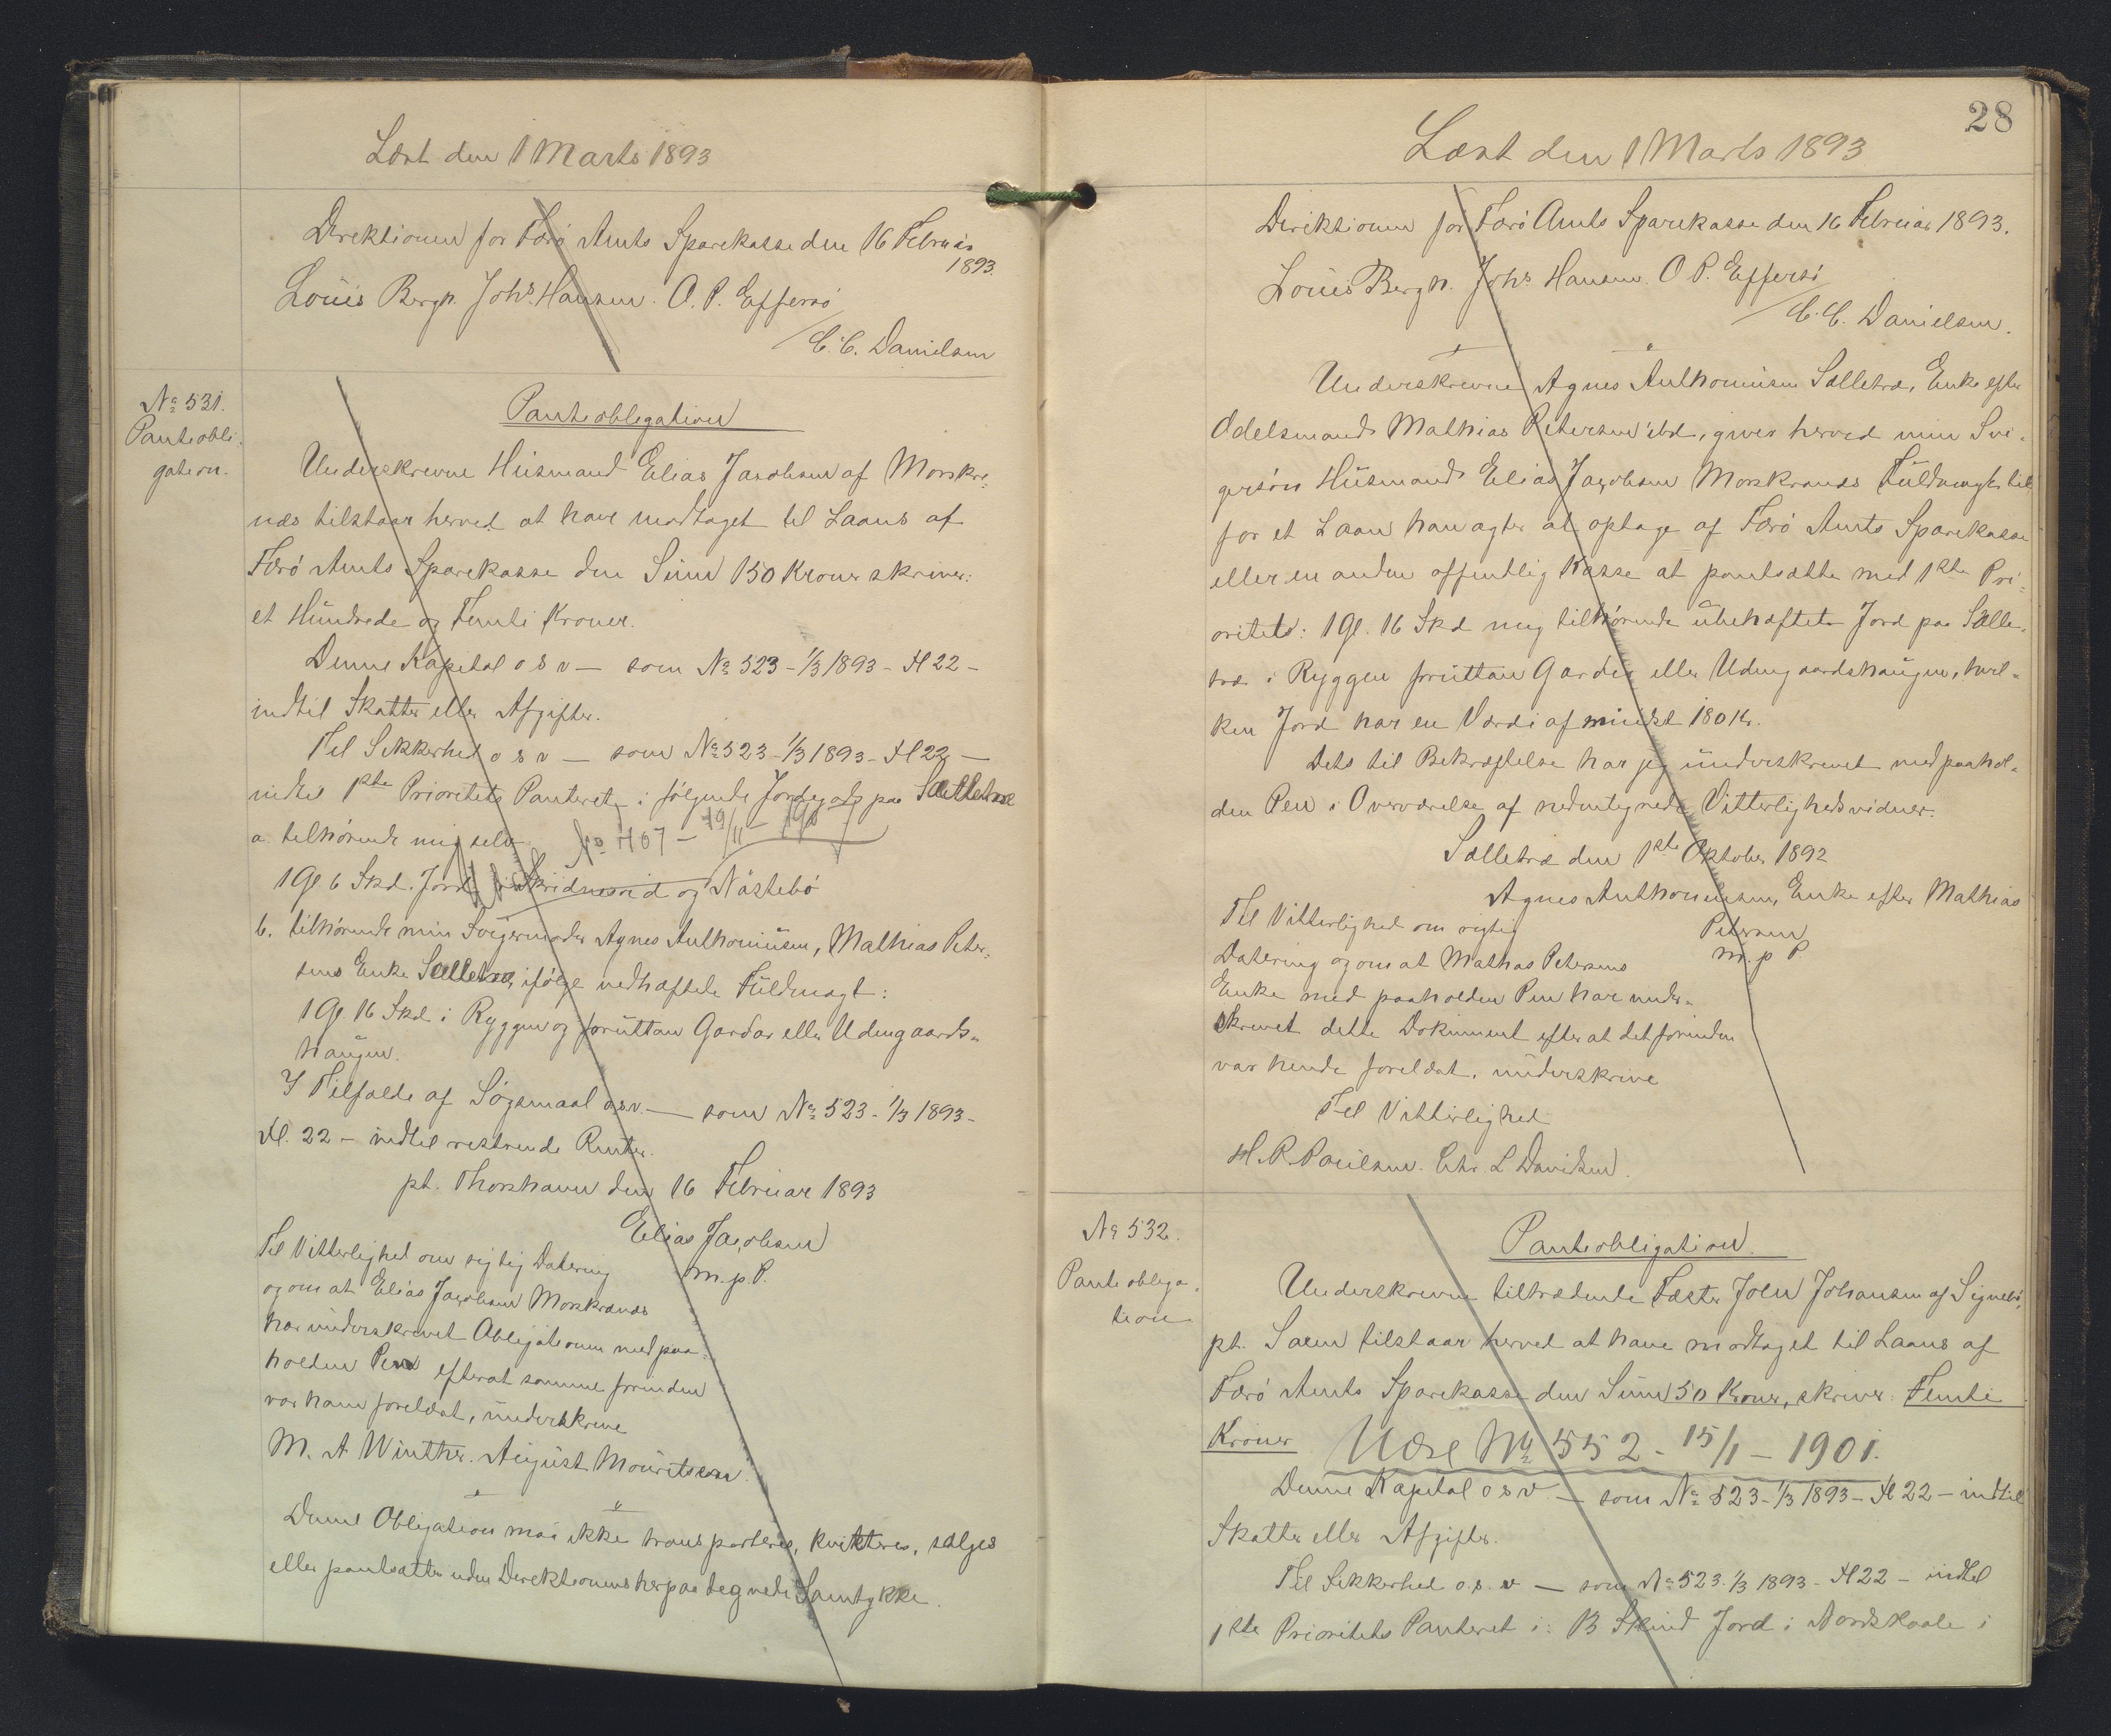 Læst den 1 Marts 1893
Direktionen for Færö Amts Sparekasse den 16 Februar
1893.
Louis Bergh. Johs. Hansen. O. P. Effersö
/ C. C. Danielsen
No 531.
Panteobli-
gation.
Panteobligation
Underskrevne Husmand Elias Jacobsen af Morskra-
næs tilstaar herved at have modtaget til Laans af
Færö Amts Sparekasse den Sum 150 Kroner skriver:
et Hundrede og Femti Kroner.
Denne Kapital o s v — som No 523 - 1/3 1893 - Fl 22 -
indtil Skatter eller Afgifter.
Til Sikkerhed o s v — som No 523 - 1/3 1893 - Fl 22 -
indtil 1ste Prioritets Panteret i følgende Jordegods paa Sælletræ
a. tilhörende mig selv No 467 - 19/11 -
1 Gl 6 Skd. Jord i og Nästebö
b. tilhörende min Svigermoder Agnes Anthoniusen, Mathias Peter-
sens Enke Sælletræ, ifölge vedhæftede Fuldmagt:
1 Gl. 16 Skd. i Ryggen og foruttan Gardar eller Udengaards-
haugen.
I Tilfælde af Sögsmaal o.s.v. — som No 523 - 1/3 1893 -
Fl. 22 - indtil resterende Renter.
pt. Thorshavn den 16 Februar 1893
Elias Jacobsen
m. p. P.
Til Vitterlighed om rigtig Datering
og om at Elias Jacobsen Morskranæs
har underskrevet Obligationen med paa-
holden Pen efterat samme forinden
var ham forelæst, underskrive
M. A Winther. August Mouritsen.
Denne Obligation maa ikke transporteres, kvitteres, sælges
eller pantsættes uden Direktionens herpaa tegnede Samtykke.
28
Læst den 1 Marts 1893
Direktionen for Færö Amts Sparekasse den 16 Februar 1893.
Louis Bergh. Johs Hansen. O P. Effersö
/ C. C. Danielsen.
Underskrevne Agnes Anthoniusen Sælletræ, Enke efter
Odelsmand Mathias Petersen ibd., giver herved min Svi-
gersön Husmand Elias Jacobsen Morskranæs Fuldmagt til
for et Laan han agter at optage af Færö Amts Sparekasse
eller en anden offentlig Kasse at pantsætte med 1ste Pri-
oritets: 1 Gl. 16 Skd mig tilhörende ubehæftet Jord paa Sælle-
træ i Ryggen foruttan Gardar eller Udengaardshaugen, hvil-
ken Jord har en Værdi af mindst 180 Kr.
Dets til Bekræftelse har jeg underskrevet med paahol-
den Pen i Overværelse af nedentegnede Vitterlighedsvidner.
Sælletræ den 1ste Oktober 1892
Agnes Anthoniusen, Enke efter Mathias
Petersen
m. p P.
Til Vitterlighed om rigtig
Datering og om at Mathias Petersens
Enke med paaholden Pen har under-
skrevet dette Dokument efter at det forinden
var hende forelæst, underskrive
Til Vitterlighed
H. P. Poulsen. Chr. L Davidsen.
No 532.
Panteobliga-
tion
Panteobligation.
Underskrevne tiltrædende Fæster Joen Johansen af Signebö,
pt. Saxen tilstaar herved at have modtaget til Laans af
Færö Amts Sparekasse den Sum 50 Kroner, skriver: Femti
Kroner No 552 - 15/1 - 1901.
Denne Kapital o s v — som No 523 - 1/3 1893 - Fl 22 - indtil
Skatter eller Afgifter.
Til Sikkerhed o. s. v — som No 523. 1/3 1893 - Fl 22 - indtil
1ste Prioritets Panteret i: 13 Skind Jord i Nordskaale i